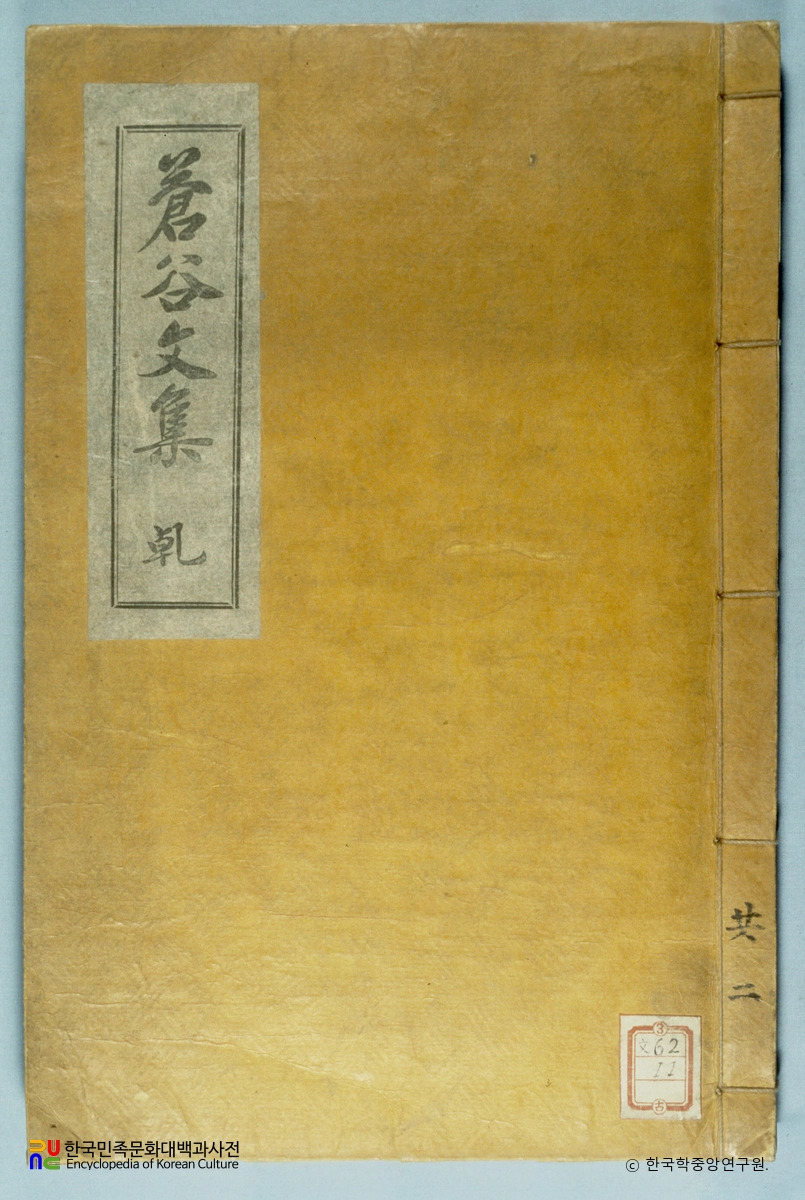 蒼谷文集 乹
共二
3
文62
11
古
한국민족문화대백과사전
Encyclopedia of Korean Culture
© 한국학중앙연구원.